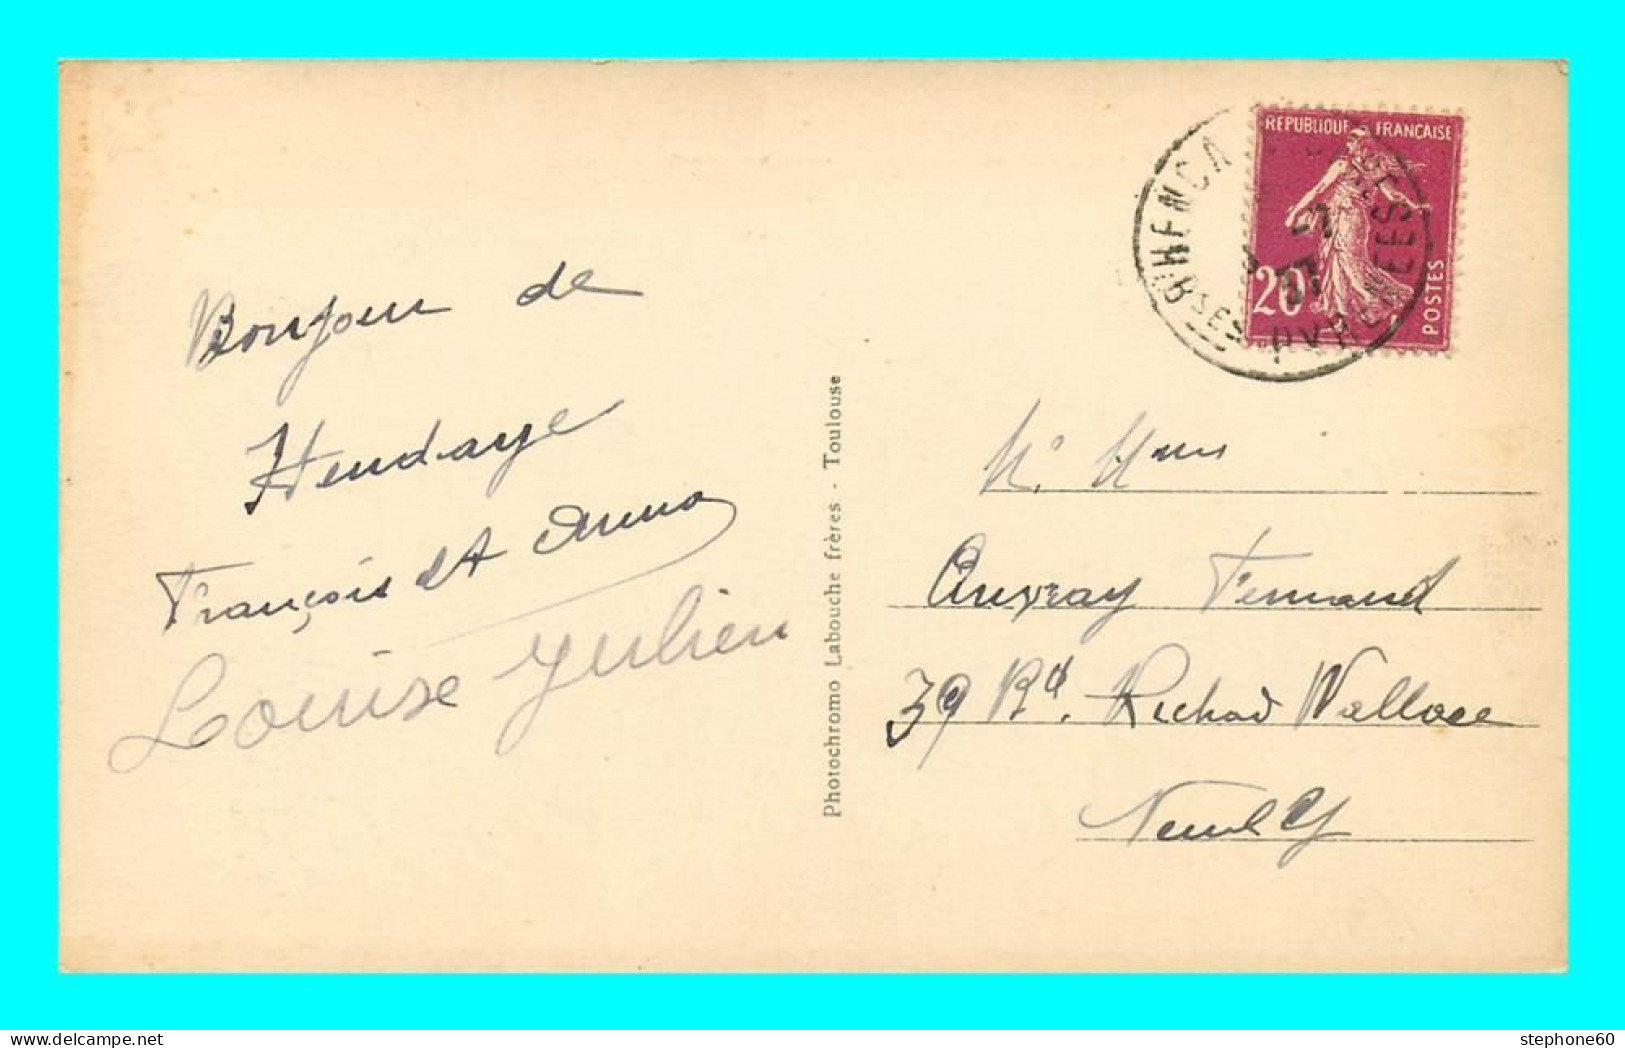 Bonjour de
Hendaye
François et Anna
Louise Julien
Photochromo Labouche frères - Toulouse
REPUBLIQUE FRANÇAISE
20c
POSTES
BSES PYRENEES
M. Mme
Auvray Fernand
39 Bd. Richard Wallace
Neuilly
stephone60